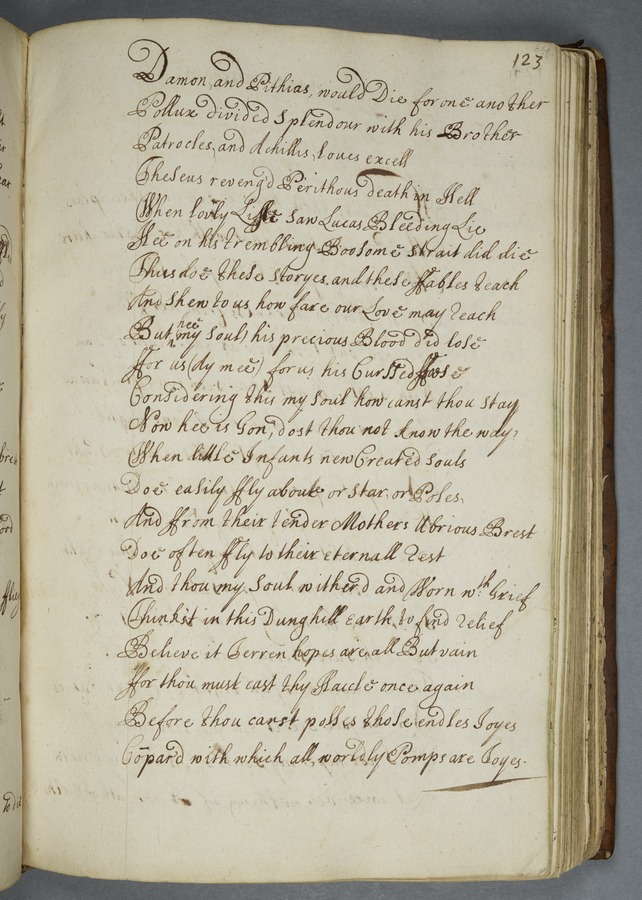 123
Damon, and Pithias, would Die for one another
Pollux divided Splendour with his Brother
Patrocles, and Achillis, loves excell
Theseus reveng'd Perithous death in Hell
When lovly Lisle saw Lucas Bleeding Lie
Hee on his trembling Boosome strait did die
Thus doe these storyes, and these ffables teach
And Shew to us how fare our Love may reach
But hee (my Soul) his precious Blood did lose
ffor us (Ay mee) for us his Curssed ffoes
Considering this my Soul how canst thou stay
Now hee is Gon, dost thou not know the way?
When little Infants new Created Souls
Doe easily ffly above or Star, or Poles
And ffrom their tender Mothers Ubrious Brest
Doe often ffly to their eternall Rest
And thou my Soul witherd and Worn wth Grief
Thinkst in this Dunghill earth to find relief
Believe it Terren hopes are all But vain
ffor thou must cast thy Haccle once again
Before thou canst posses those endles Joyes
Cōpar'd with which all worldly Pomps are Toyes.